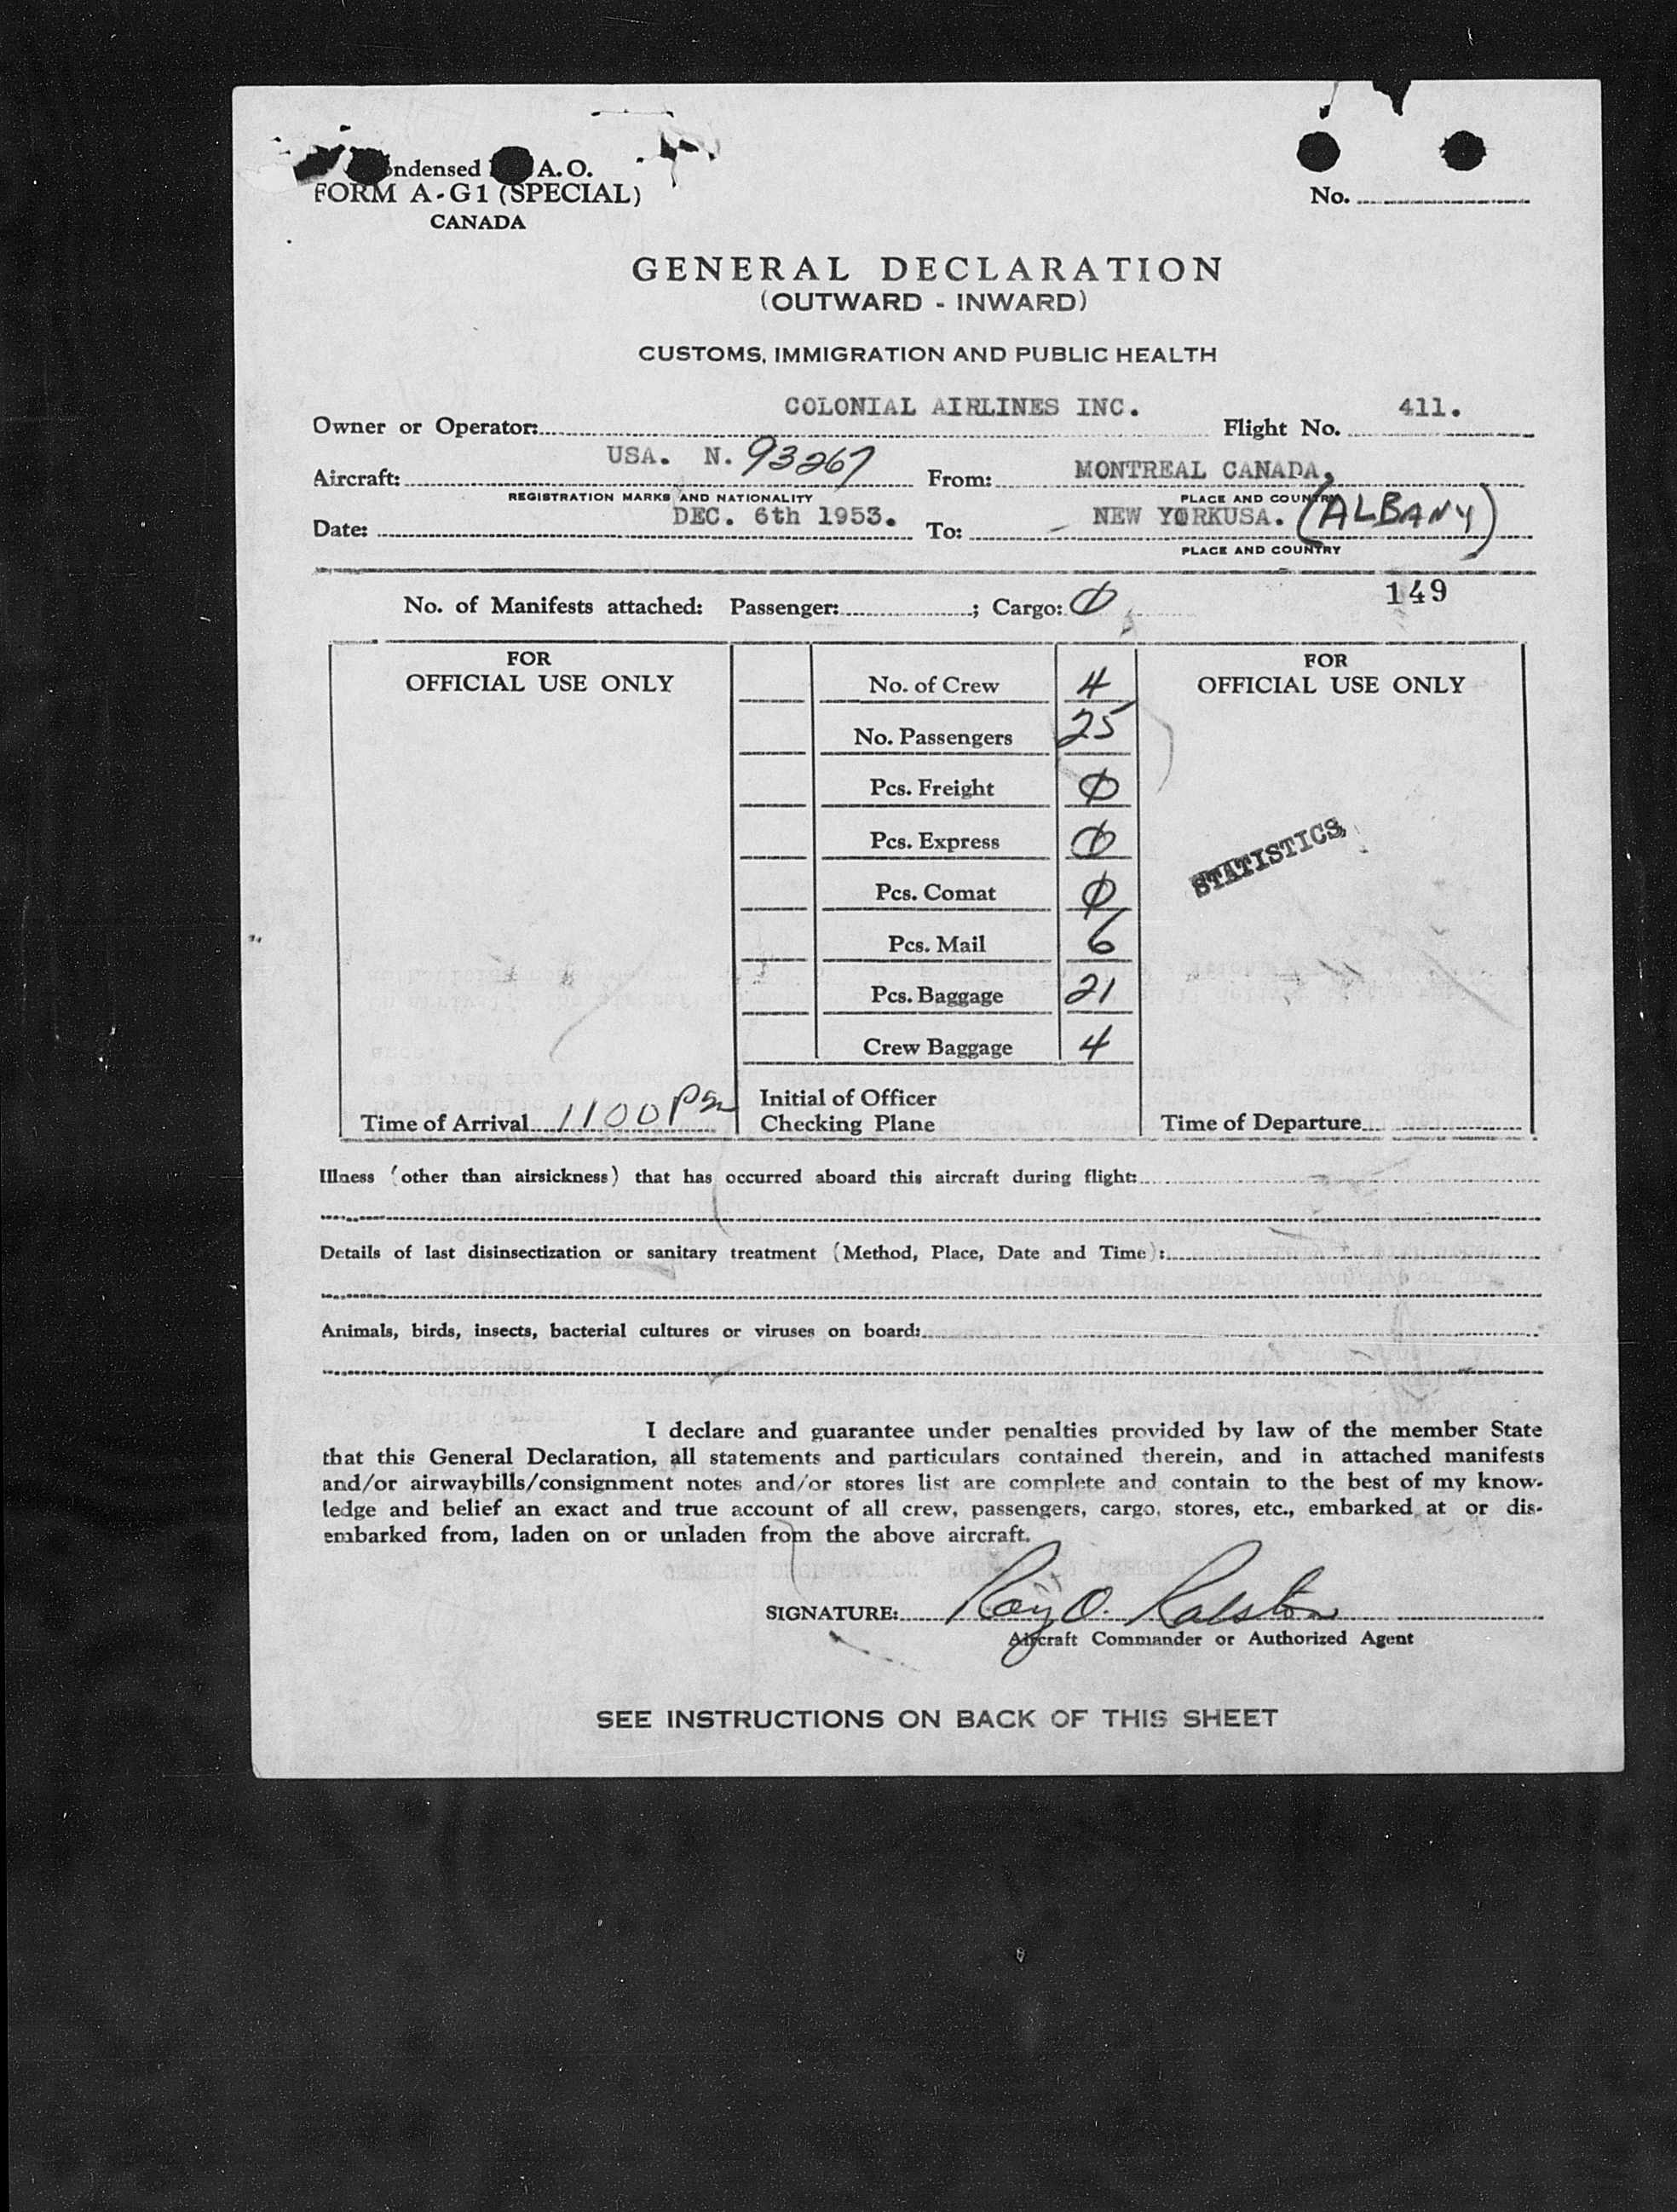 ondensed A. O.
FORM A-G1 (SPECIAL)
CANADA
No.
GENERAL DECLARATION
(OUTWARD - INWARD)
CUSTOMS, IMMIGRATION AND PUBLIC HEALTH
Owner or Operator: COLONIAL AIRLINES INC. Flight No. 411.
Aircraft: USA. N. 93267 From: MONTREAL CANADA,
REGISTRATION MARKS AND NATIONALITY PLACE AND COUNTRY
Date: DEC. 6th 1953. To: NEW YORKUSA. (ALBANY)
PLACE AND COUNTRY
149
No. of Manifests attached: Passenger: ; Cargo: 0
FOR
OFFICIAL USE ONLY
No. of Crew 4
No. Passengers 25
Pcs. Freight 0
Pcs. Express 0
Pcs. Comat 0
Pcs. Mail 6
Pcs. Baggage 21
Crew Baggage 4
FOR
OFFICIAL USE ONLY
STATISTICS
Time of Arrival 1100 Pm
Initial of Officer
Checking Plane
Time of Departure
Illness (other than airsickness) that has occurred aboard this aircraft during flight:
Details of last disinsectization or sanitary treatment (Method, Place, Date and Time):
Animals, birds, insects, bacterial cultures or viruses on board:
I declare and guarantee under penalties provided by law of the member State
that this General Declaration, all statements and particulars contained therein, and in attached manifests
and/or airwaybills/consignment notes and/or stores list are complete and contain to the best of my know-
ledge and belief an exact and true account of all crew, passengers, cargo, stores, etc., embarked at or dis-
embarked from, laden on or unladen from the above aircraft.
SIGNATURE: Roy O. Ralston
Aircraft Commander or Authorized Agent
SEE INSTRUCTIONS ON BACK OF THIS SHEET